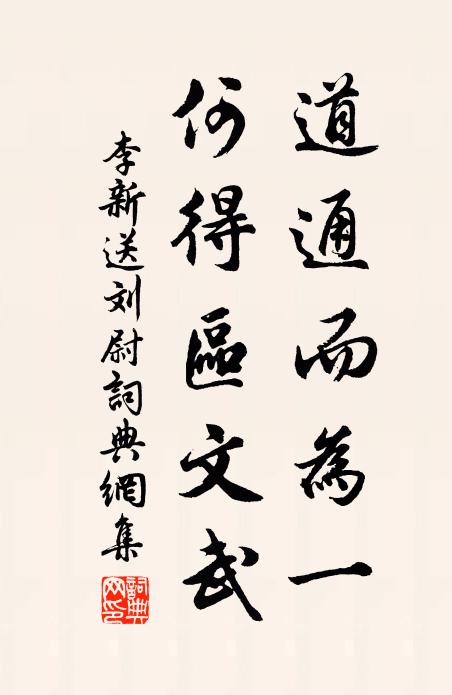 道通而為一
何得區文武
李新送刘尉詞典網集
詞典网印